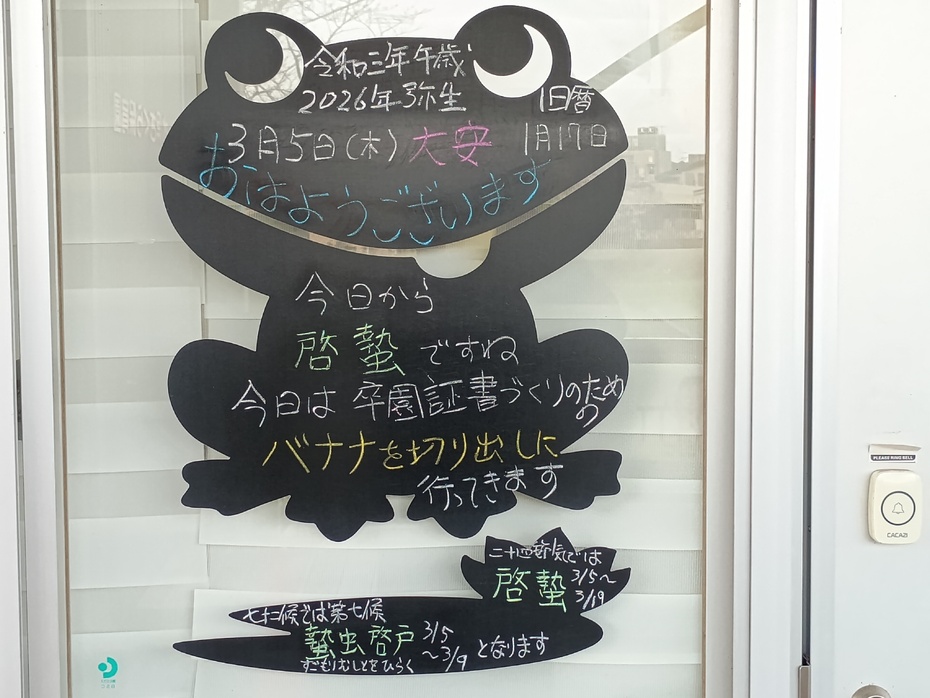 令和三年午歳
2026年弥生
旧暦
3月5日(木)大安 1月17日
おはようございます
今日から
啓蟄ですね
今日は卒園証書づくりのための
バナナを切り出しに
行ってきます
二十四節気では
啓蟄 3/5～3/19
七十二候では第七候
蟄虫啓戸 3/5～3/9 となります
すごもりむしとをひらく
PLEASE RING BELL
CACAZI